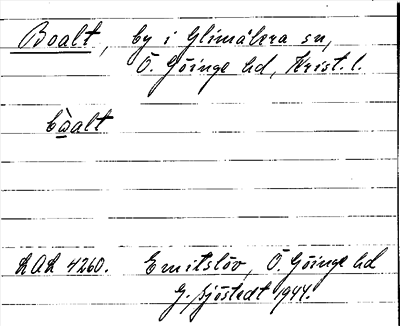 Boalt, by i Glimåkra sn,
Ö. Göinge hd, Krist. l.
bòalt
LAL 4260. Emitslöv, Ö. Göinge hd
G. Sjöstedt 1944.